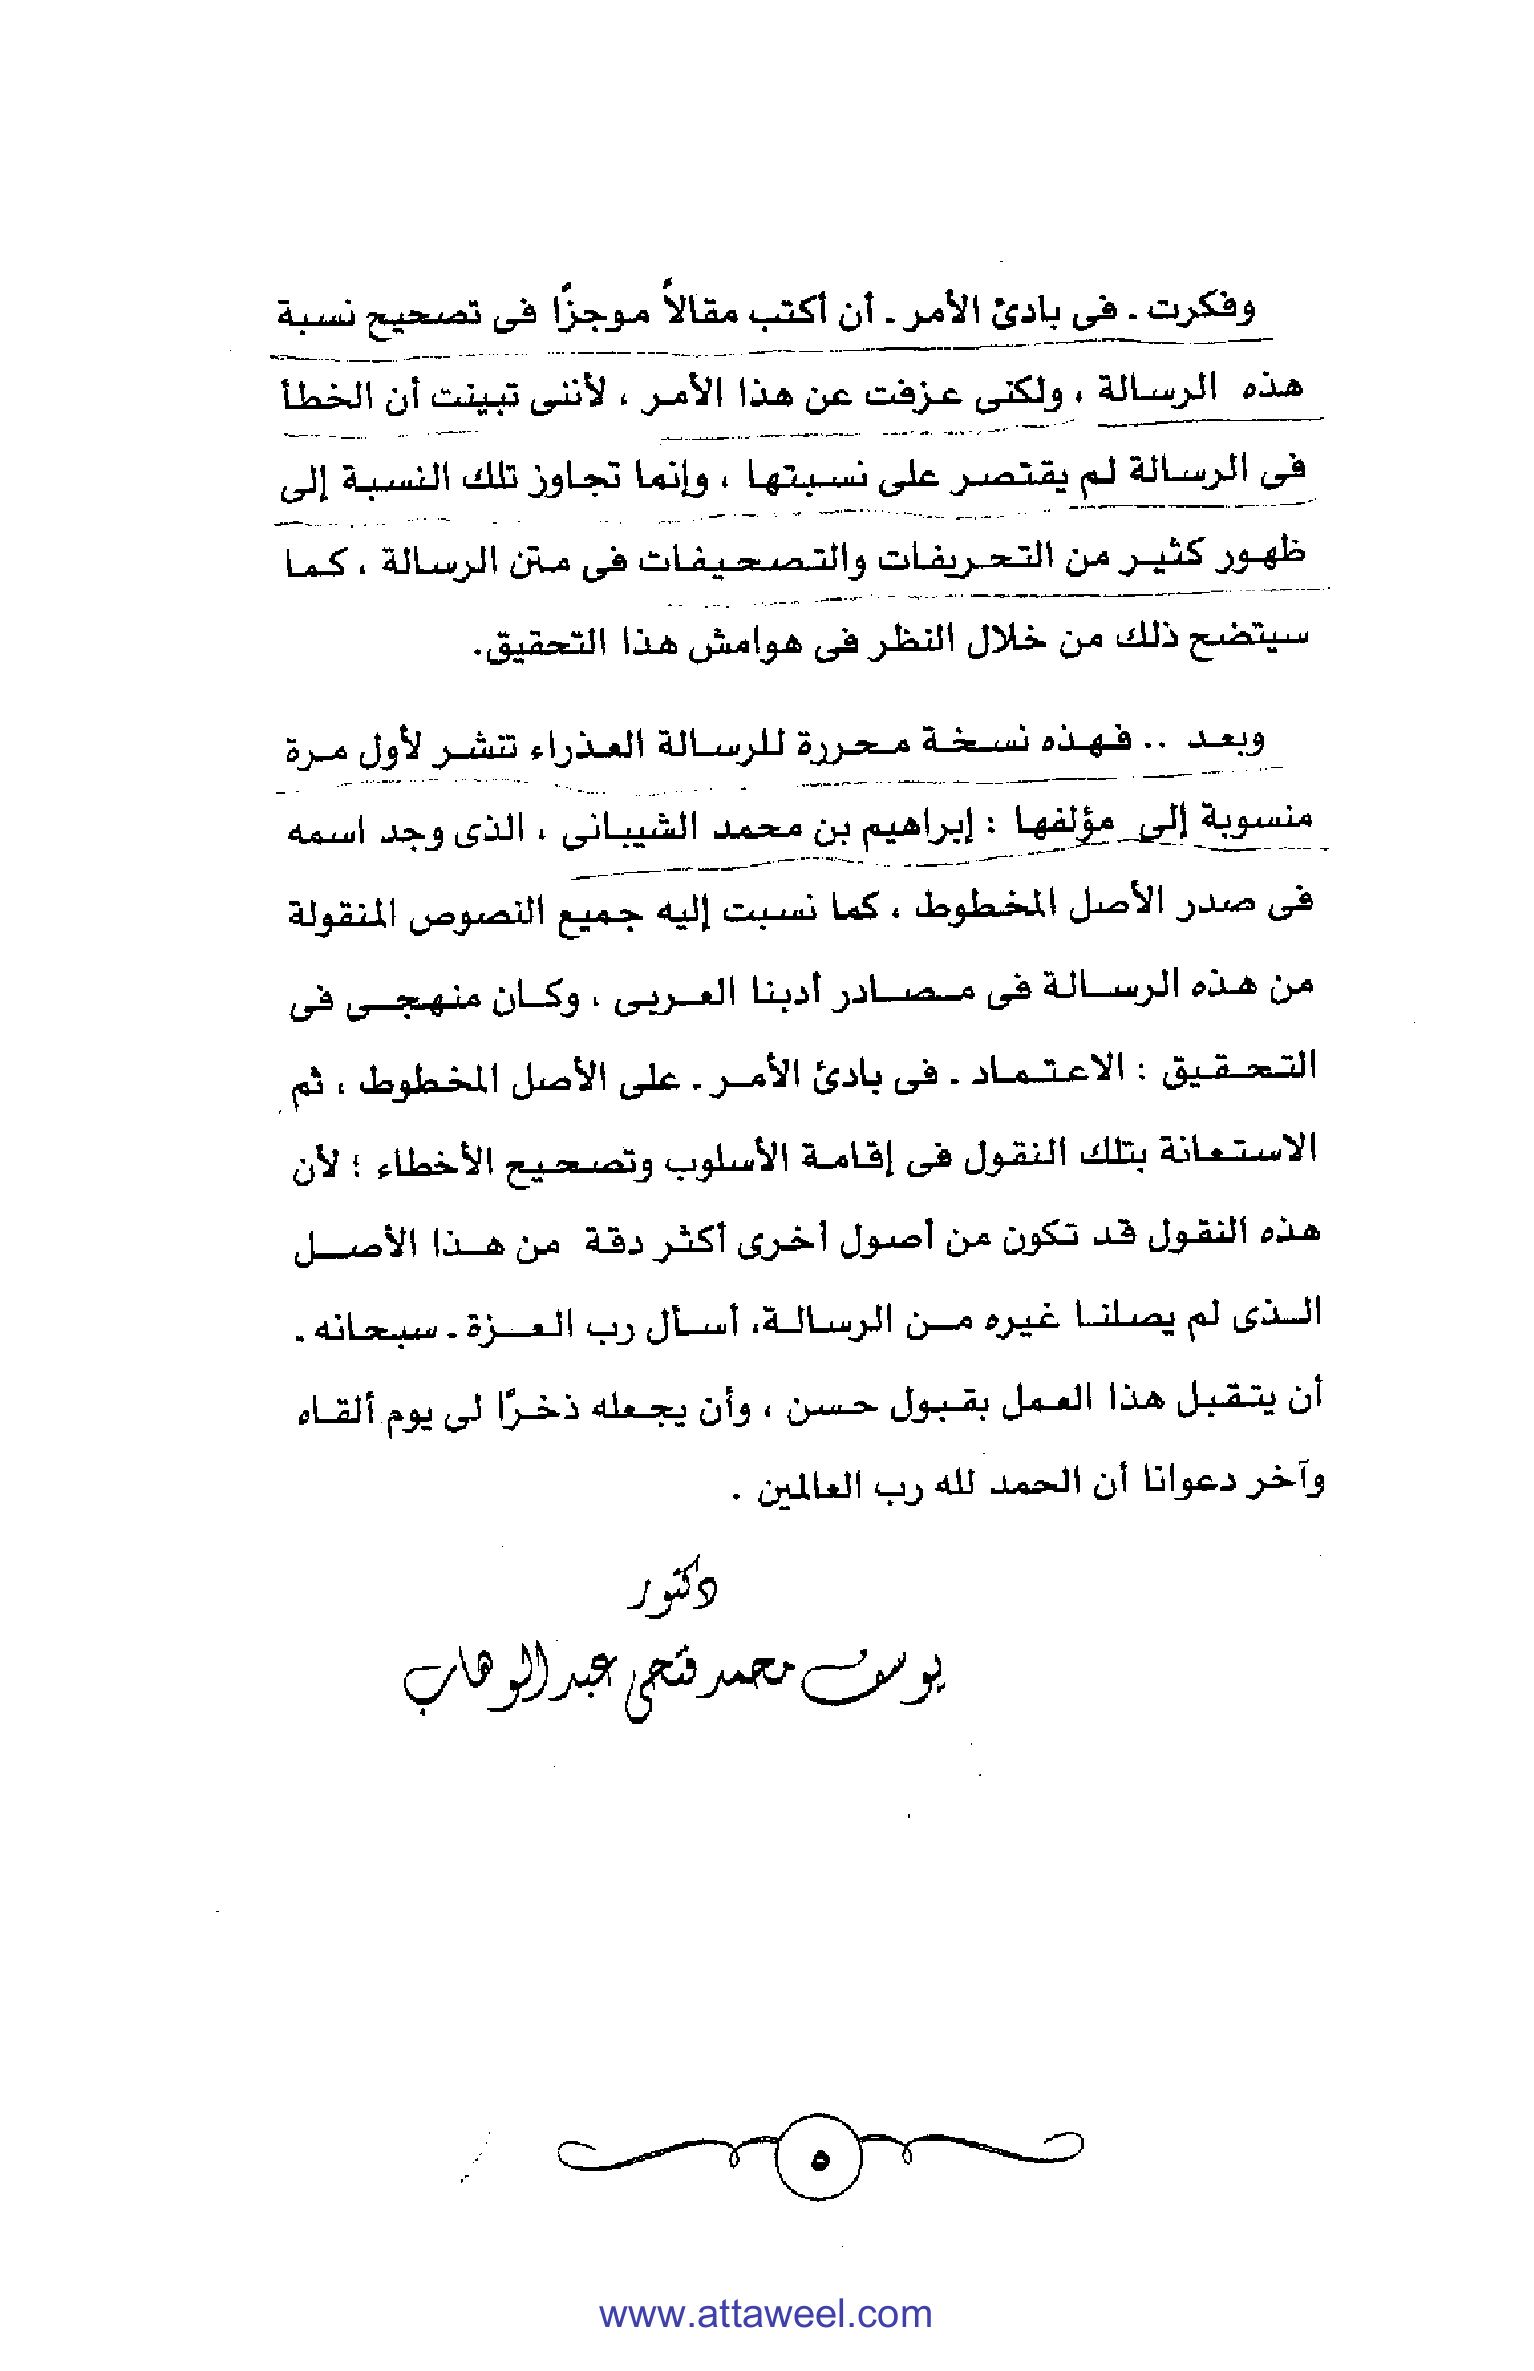 وفكرت ـ فى بادئ الأمر ـ أن أكتب مقالاً موجزًا فى تصحيح نسبة
هذه الرسالة ، ولكنى عزفت عن هذا الأمر ، لأننى تبينت أن الخطأ
فى الرسالة لم يقتصر على نسبتها ، وإنما تجاوز تلك النسبة إلى
ظهور كثير من التحريفات والتصحيفات فى متن الرسالة ، كما
سيتضح ذلك من خلال النظر فى هوامش هذا التحقيق.
وبعد .. فهذه نسخة محررة للرسالة العذراء تنشر لأول مرة
منسوبة إلى مؤلفها : إبراهيم بن محمد الشيبانى ، الذى وجد اسمه
فى صدر الأصل المخطوط ، كما نسبت إليه جميع النصوص المنقولة
من هذه الرسالة فى مصادر أدبنا العربى ، وكان منهجى فى
التحقيق : الاعتماد ـ فى بادئ الأمر ـ على الأصل المخطوط ، ثم
الاستعانة بتلك النقول فى إقامة الأسلوب وتصحيح الأخطاء ؛ لأن
هذه النقول قد تكون من أصول أخرى أكثر دقة من هذا الأصل
الذى لم يصلنا غيره من الرسالة، أسأل رب العزة ـ سبحانه ـ
أن يتقبل هذا العمل بقبول حسن ، وأن يجعله ذخرًا لى يوم ألقاه
وآخر دعوانا أن الحمد لله رب العالمين .
دكتور
يوسف محمد فتحى عبد الوهاب
٥
www.attaweel.com